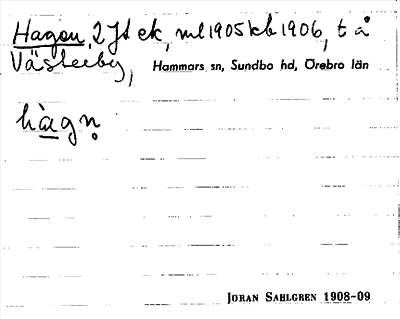 Hagen, 2 Jt ek, ml 1905 kb 1906, t å
Västerby, Hammars sn, Sundbo hd, Örebro län
hàgn̥
JÖRAN SAHLGREN 1908-09